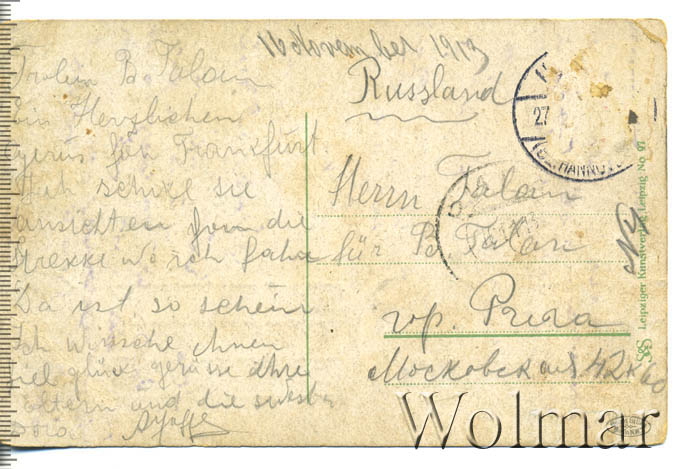 16 November 1913
Frolein B. Falan
ein Herzlichen
gruss fon Frankfurt
Ich schike sie
ansichten fom die
strekke wo ich fahr
Da ist so schein
Ich winsche ihnen
fiel glük grüsse Ihre
eltern und die
Russland
Herrn Falan
für B. Falan
гр. Рига
Московская 42 к 60
27
HANNOV
Leipziger Kunstverlag Leipzig No 97
Wolmar